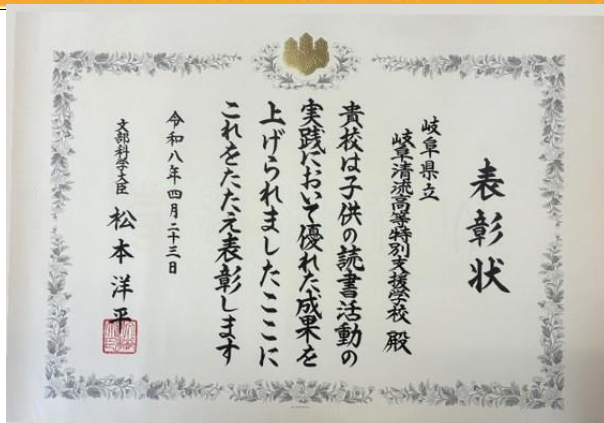 表彰状
岐阜県立
岐阜清流高等特別支援学校 殿
貴校は子供の読書活動の
実践において優れた成果を
上げられましたここに
これをたたえ表彰します
令和八年四月二十三日
文部科学大臣 松本洋平